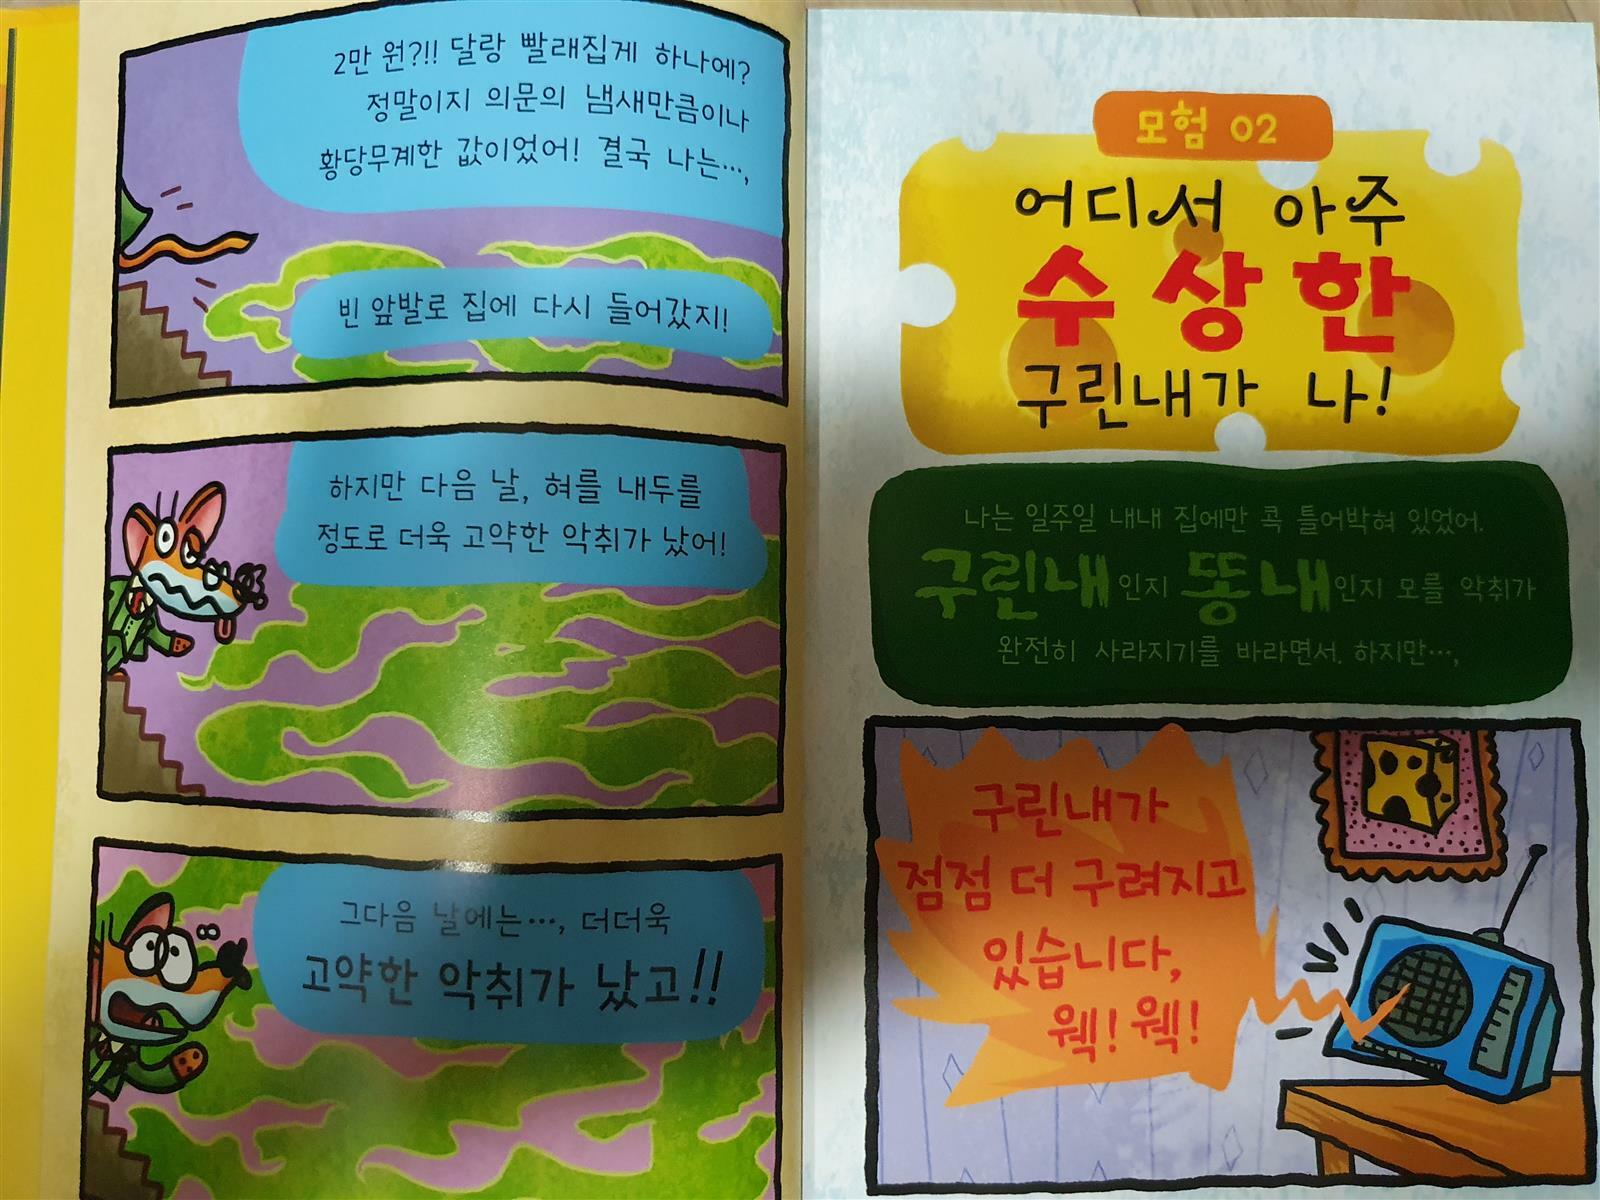 2만 원?!! 달랑 빨래집게 하나에?
정말이지 의문의 냄새만큼이나
황당무계한 값이었어! 결국 나는…,
빈 앞발로 집에 다시 들어갔지!
하지만 다음 날, 혀를 내두를
정도로 더욱 고약한 악취가 났어!
그다음 날에는…, 더더욱
고약한 악취가 났고!!
모험 02
어디서 아주
수상한
구린내가 나!
나는 일주일 내내 집에만 콕 틀어박혀 있었어.
구린내인지 똥내인지 모를 악취가
완전히 사라지기를 바라면서. 하지만…,
구린내가
점점 더 구려지고
있습니다,
웩! 웩!